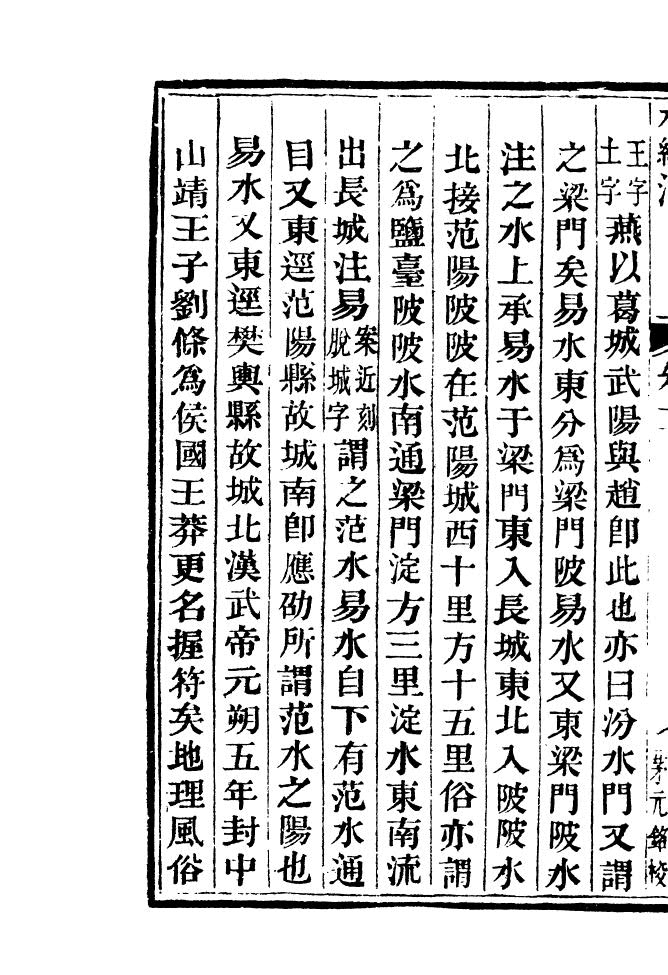 王字
土字
燕以葛城武陽與趙卽此也亦曰汾水門又謂
之梁門矣易水東分爲梁門陂易水又東梁門陂水
注之水上承易水于梁門東入長城東北入陂陂水
北接范陽陂陂在范陽城西十里方十五里俗亦謂
之爲鹽臺陂陂水南通梁門淀方三里淀水東南流
出長城注易
案近刻
脫城字
謂之范水易水自下有范水通
目又東逕范陽縣故城南卽應劭所謂范水之陽也
易水又東逕樊輿縣故城北漢武帝元朔五年封中
山靖王子劉條爲侯國王莽更名握符矣地理風俗